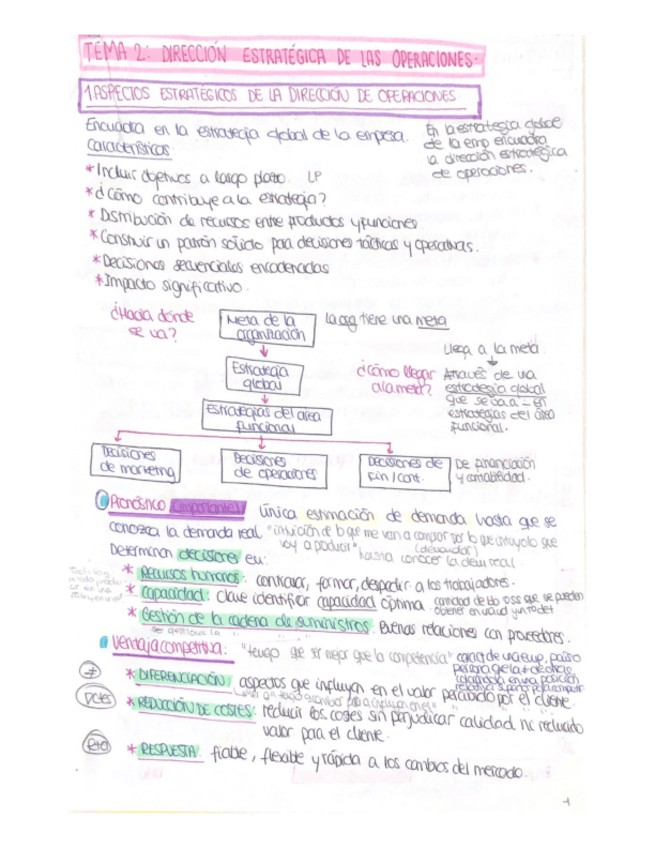 TEMA 2: DIRECCIÓN ESTRATÉGICA DE LAS OPERACIONES.
1.ASPECTOS ESTRATÉGICOS DE LA DIRECCIÓN DE OPERACIONES
Encuadra en la estrategia global de la empresa.
Características
En la estrategia global
de la emp encuadra
la dirección estratégica
de operaciones.
* Incluir objetivos a largo plazo. LP
* ¿Cómo contribuye a la estrategia?
* Distribución de recursos entre productos y funciones
* Construir un patrón sólido para decisiones tácticas y operativas.
* Decisiones secuenciales encadenadas
* Impacto significativo.
¿Hacia dónde
se va?
Meta de la
organización
la org tiene una meta
Estrategia
global
¿Cómo llegar
a la meta?
Llega a la meta
Através de una
estrategia global
que se basa en
estrategias del área
funcional.
Estrategias del area
funcional
Decisiones
de marketing
Decisiones
de operaciones
Decisiones de
fin/cont.
De financiación
y contabilidad.
Pronóstico (importante) única estimación de demanda hasta que se
conozca la demanda real. "intuición de lo que me van a comprar por lo que intuyo lo que
voy a producir" (demandar) hasta conocer la dem real
Determinan decisiones en:
* Recursos humanos: contratar, formar, despedir a los trabajadores.
* Capacidad: Clave identificar capacidad óptima. cantidad de bb o ss que se pueden
obtener en una ud
* Gestión de la cadena de suministros: Buenas relaciones con proveedores.
se gestiona la
Ventaja competitiva: "tengo que ser mejor que la competencia"
≠
* DIFERENCIACIÓN: aspectos que influyen en el valor percibido por el cliente.
* REDUCCIÓN DE COSTES: reducir los costes sin perjudicar calidad ni reducido
valor para el cliente.
* RESPUESTA: fiable, flexible y rápida a los cambios del mercado.
1